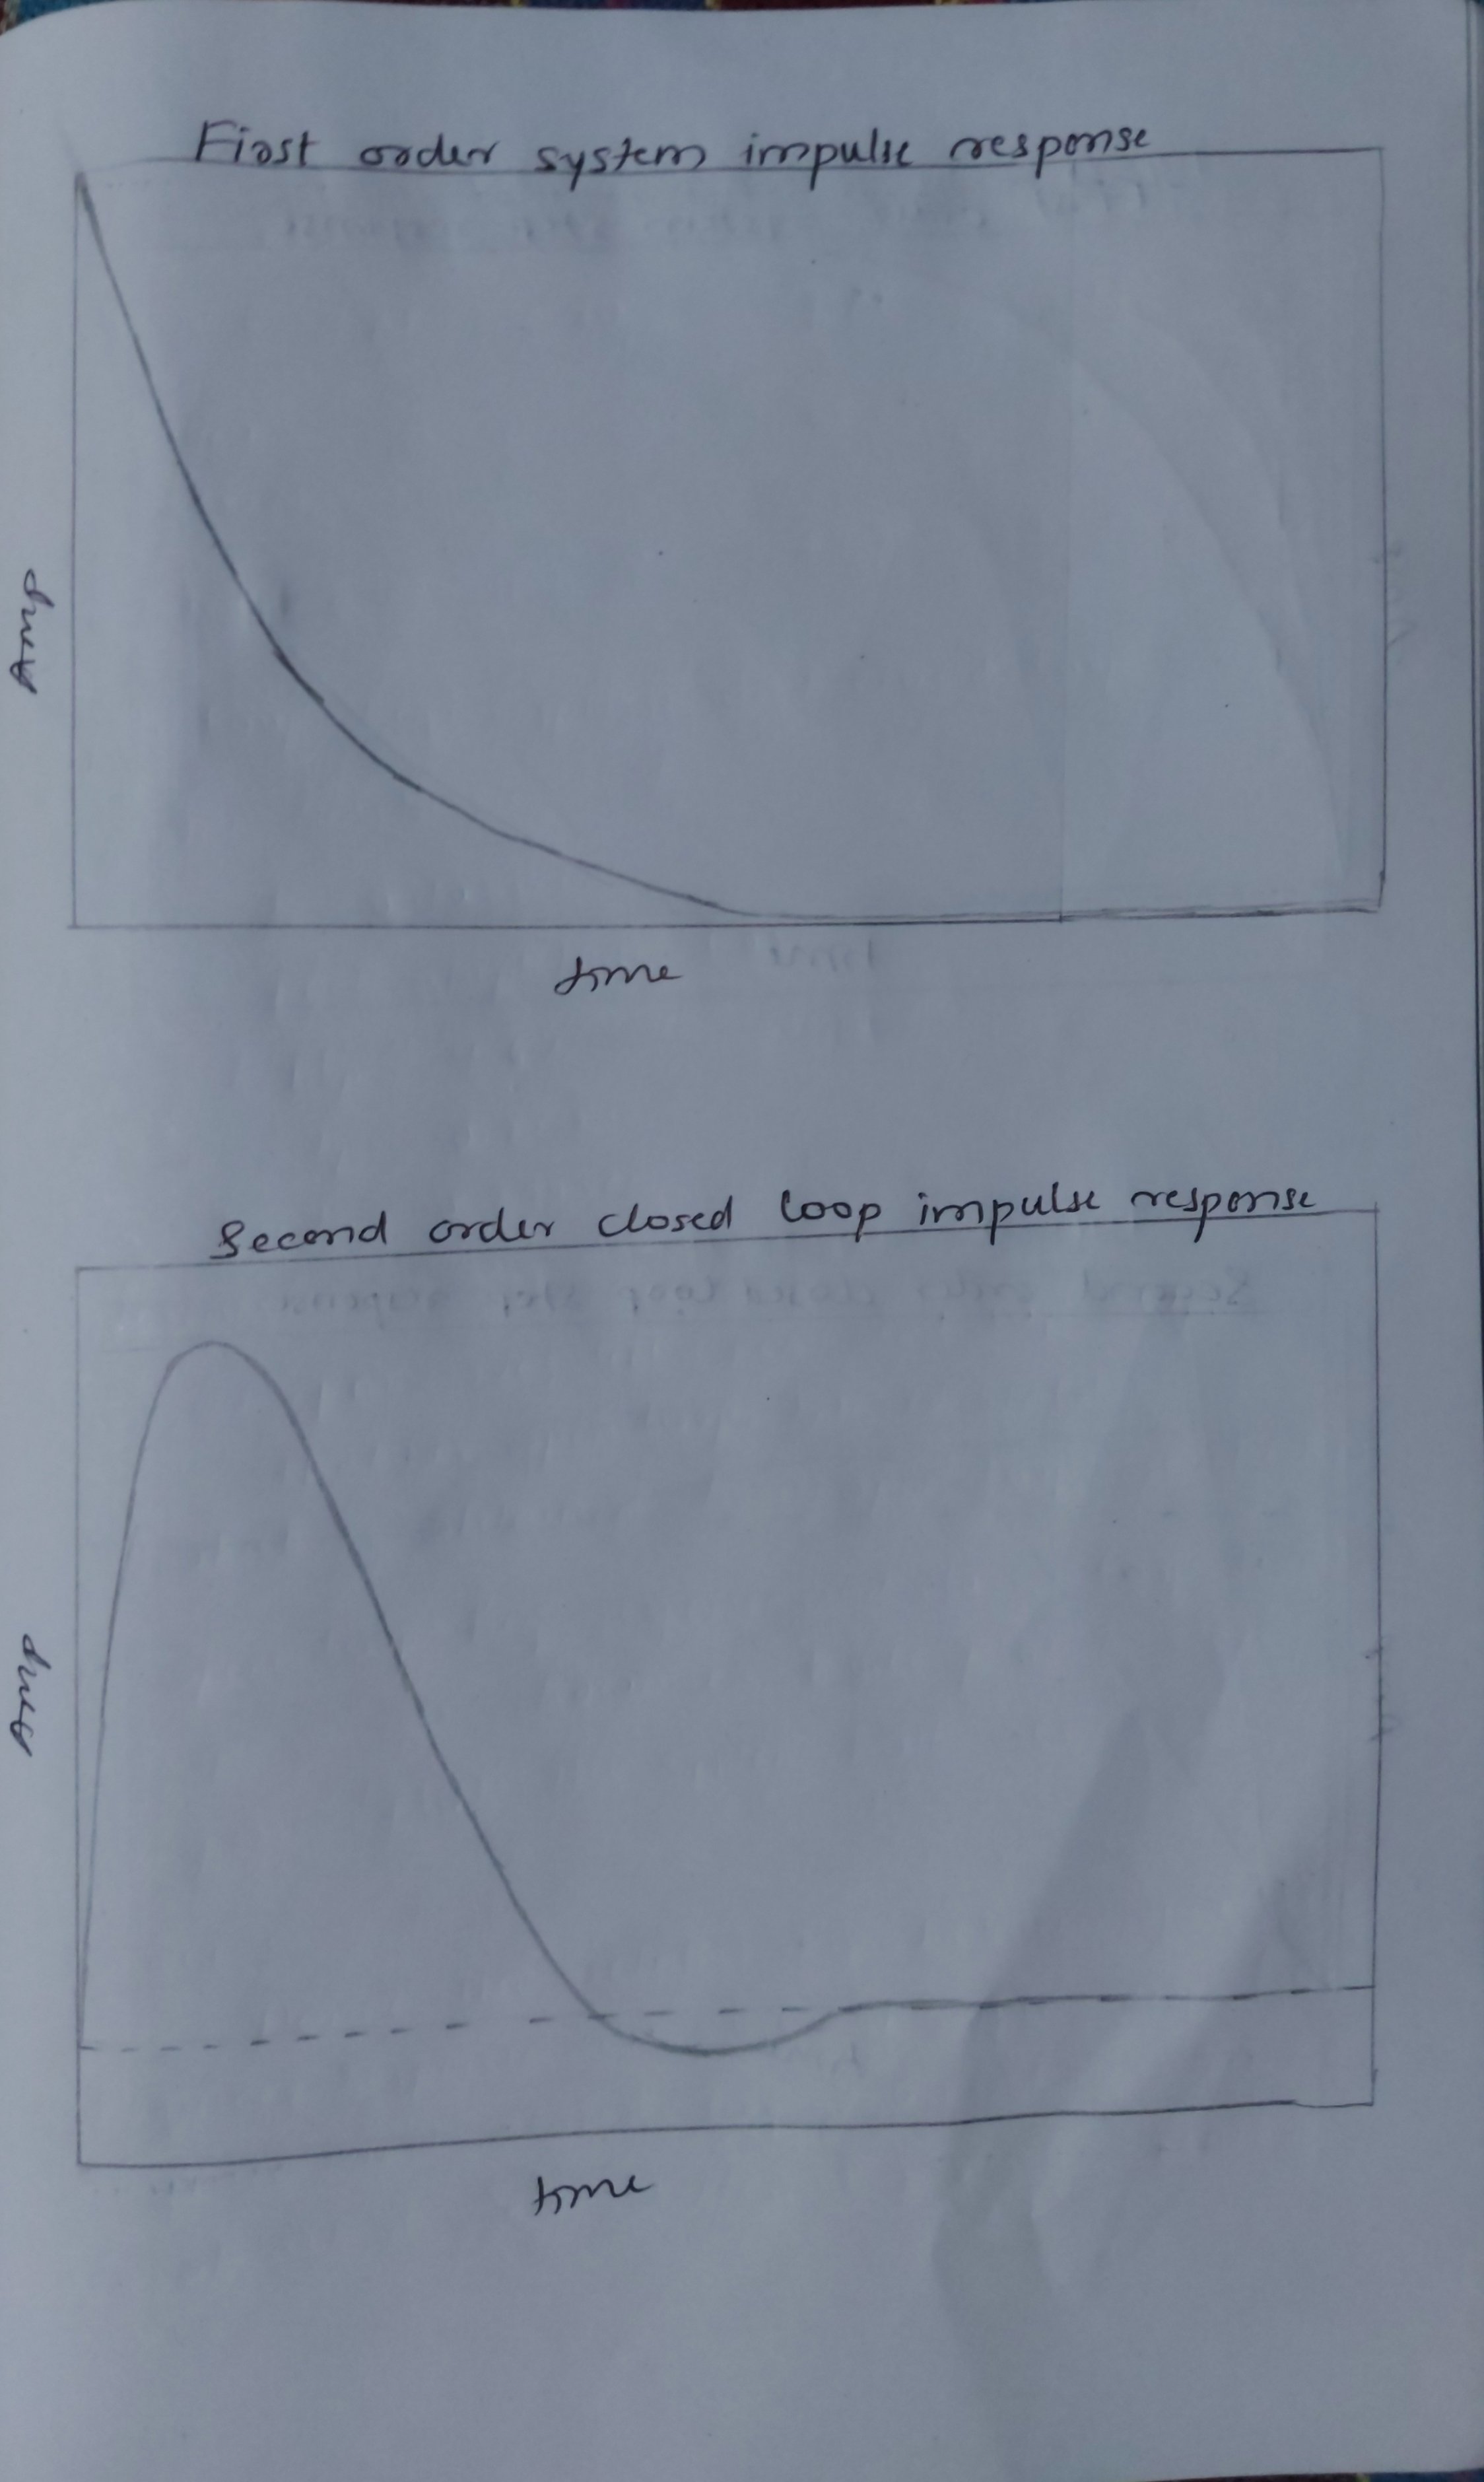 First order system impulse response
Amp
time
Second order closed loop impulse response
Amp
time